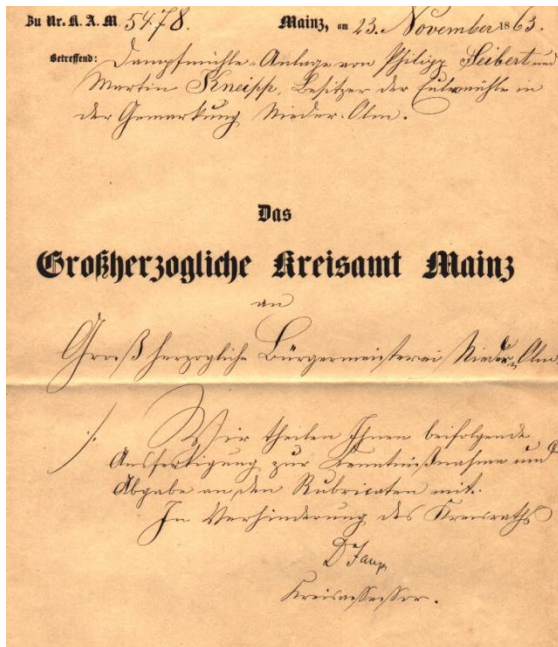 Zu Nr. K. A. M. 5478. Mainz, am 23. November 1863.
Betreffend: Dampfmühle-Anlage von Philipp Seibert und
Martin Kneipp, Besitzer der Eulmühle in
der Gemarkung Nieder-Olm.
Das
Großherzogliche Kreisamt Mainz
an
Großherzogliche Bürgermeisterei Nieder-Olm
./. Wir theilen Ihnen beifolgende
Ausfertigung zur Kenntnißnahme und
Abgabe an den Rubricaten mit.
In Verhinderung des Kreisraths
Kreisassessor.